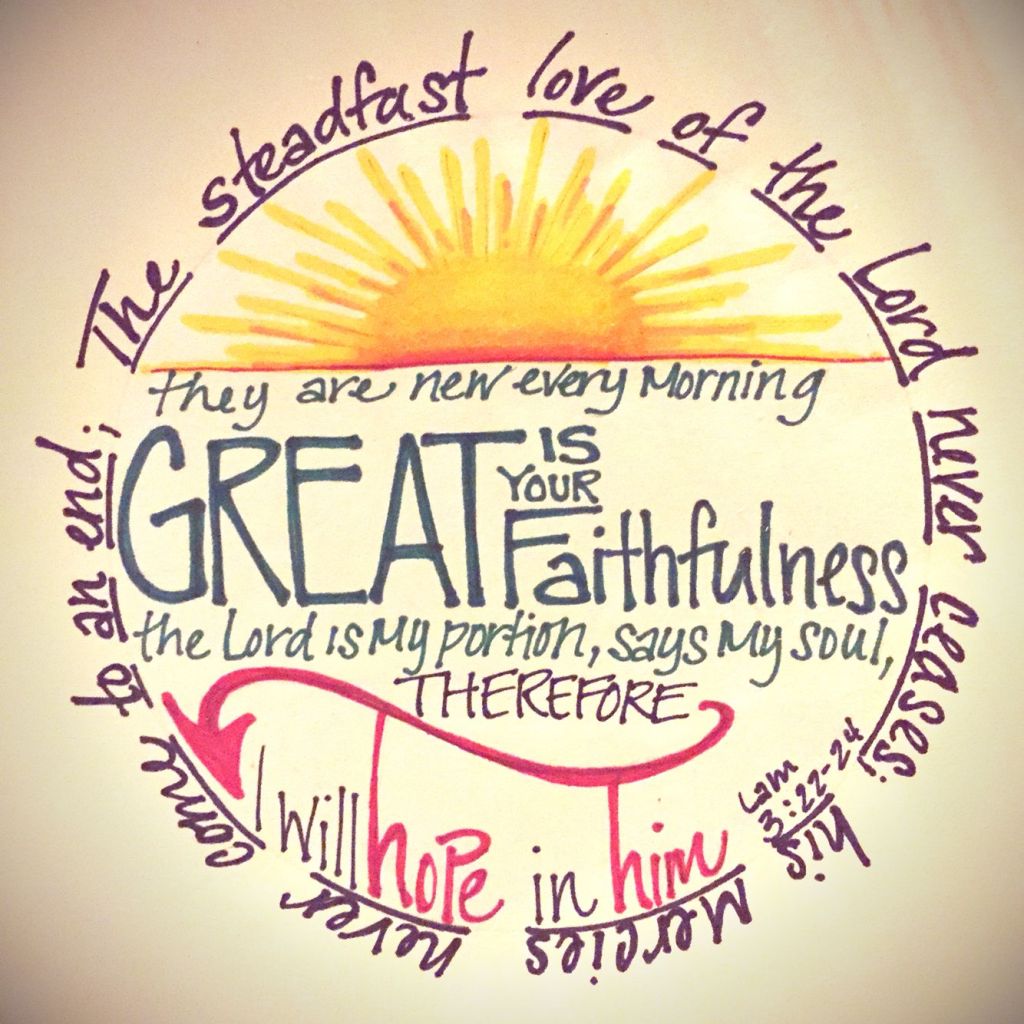 The steadfast love of the Lord never ceases; his mercies never come to an end;
they are new every Morning
GREAT IS YOUR Faithfulness
the Lord is My portion, says My soul,
THEREFORE
I will hope in him
Lam 3:22-24